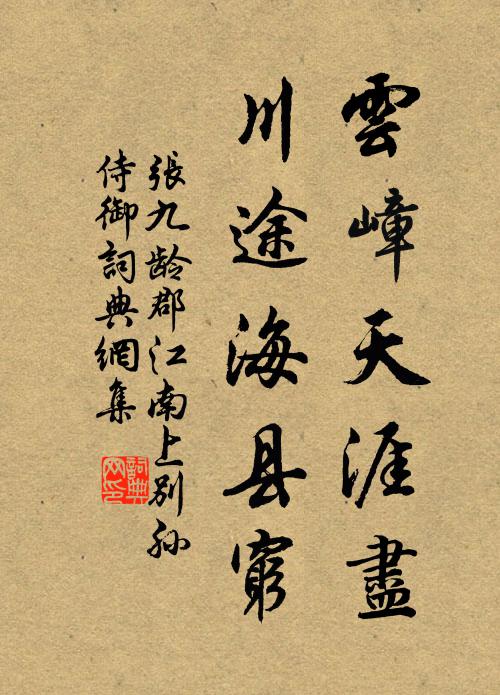 雲嶂天涯盡
川途海县窮
張九龄郡江南上别孙
侍御詞典網集
詞典网印